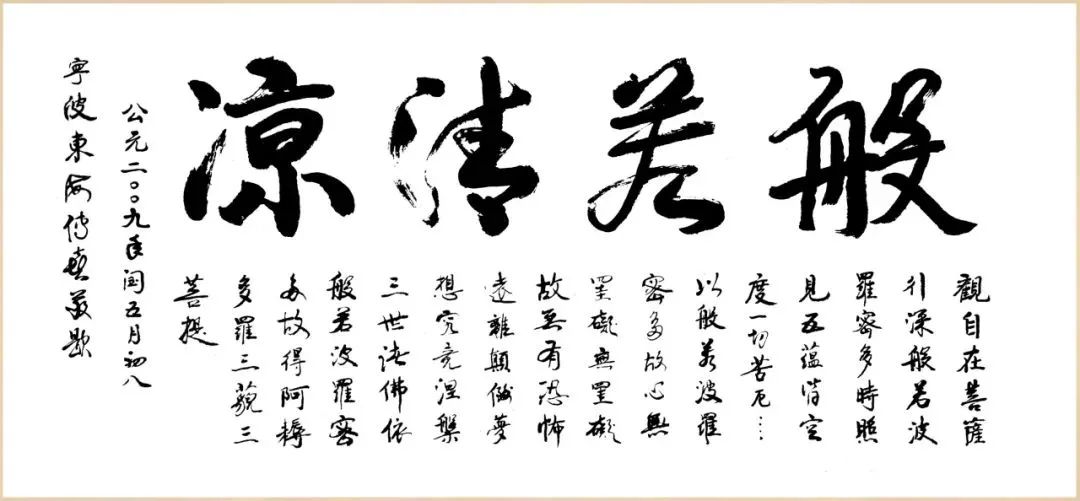 般若清凉
觀自在菩薩
行深般若波
羅密多時照
見五蘊皆空
度一切苦厄…
以般若波羅
密多故心無
罣礙無罣礙
故無有恐怖
遠離顛倒夢
想究竟涅槃
三世諸佛依
般若波羅密
多故得阿耨
多羅三藐三
菩提
公元二〇〇九年闰五月初八
寧波東海傳喜敬題